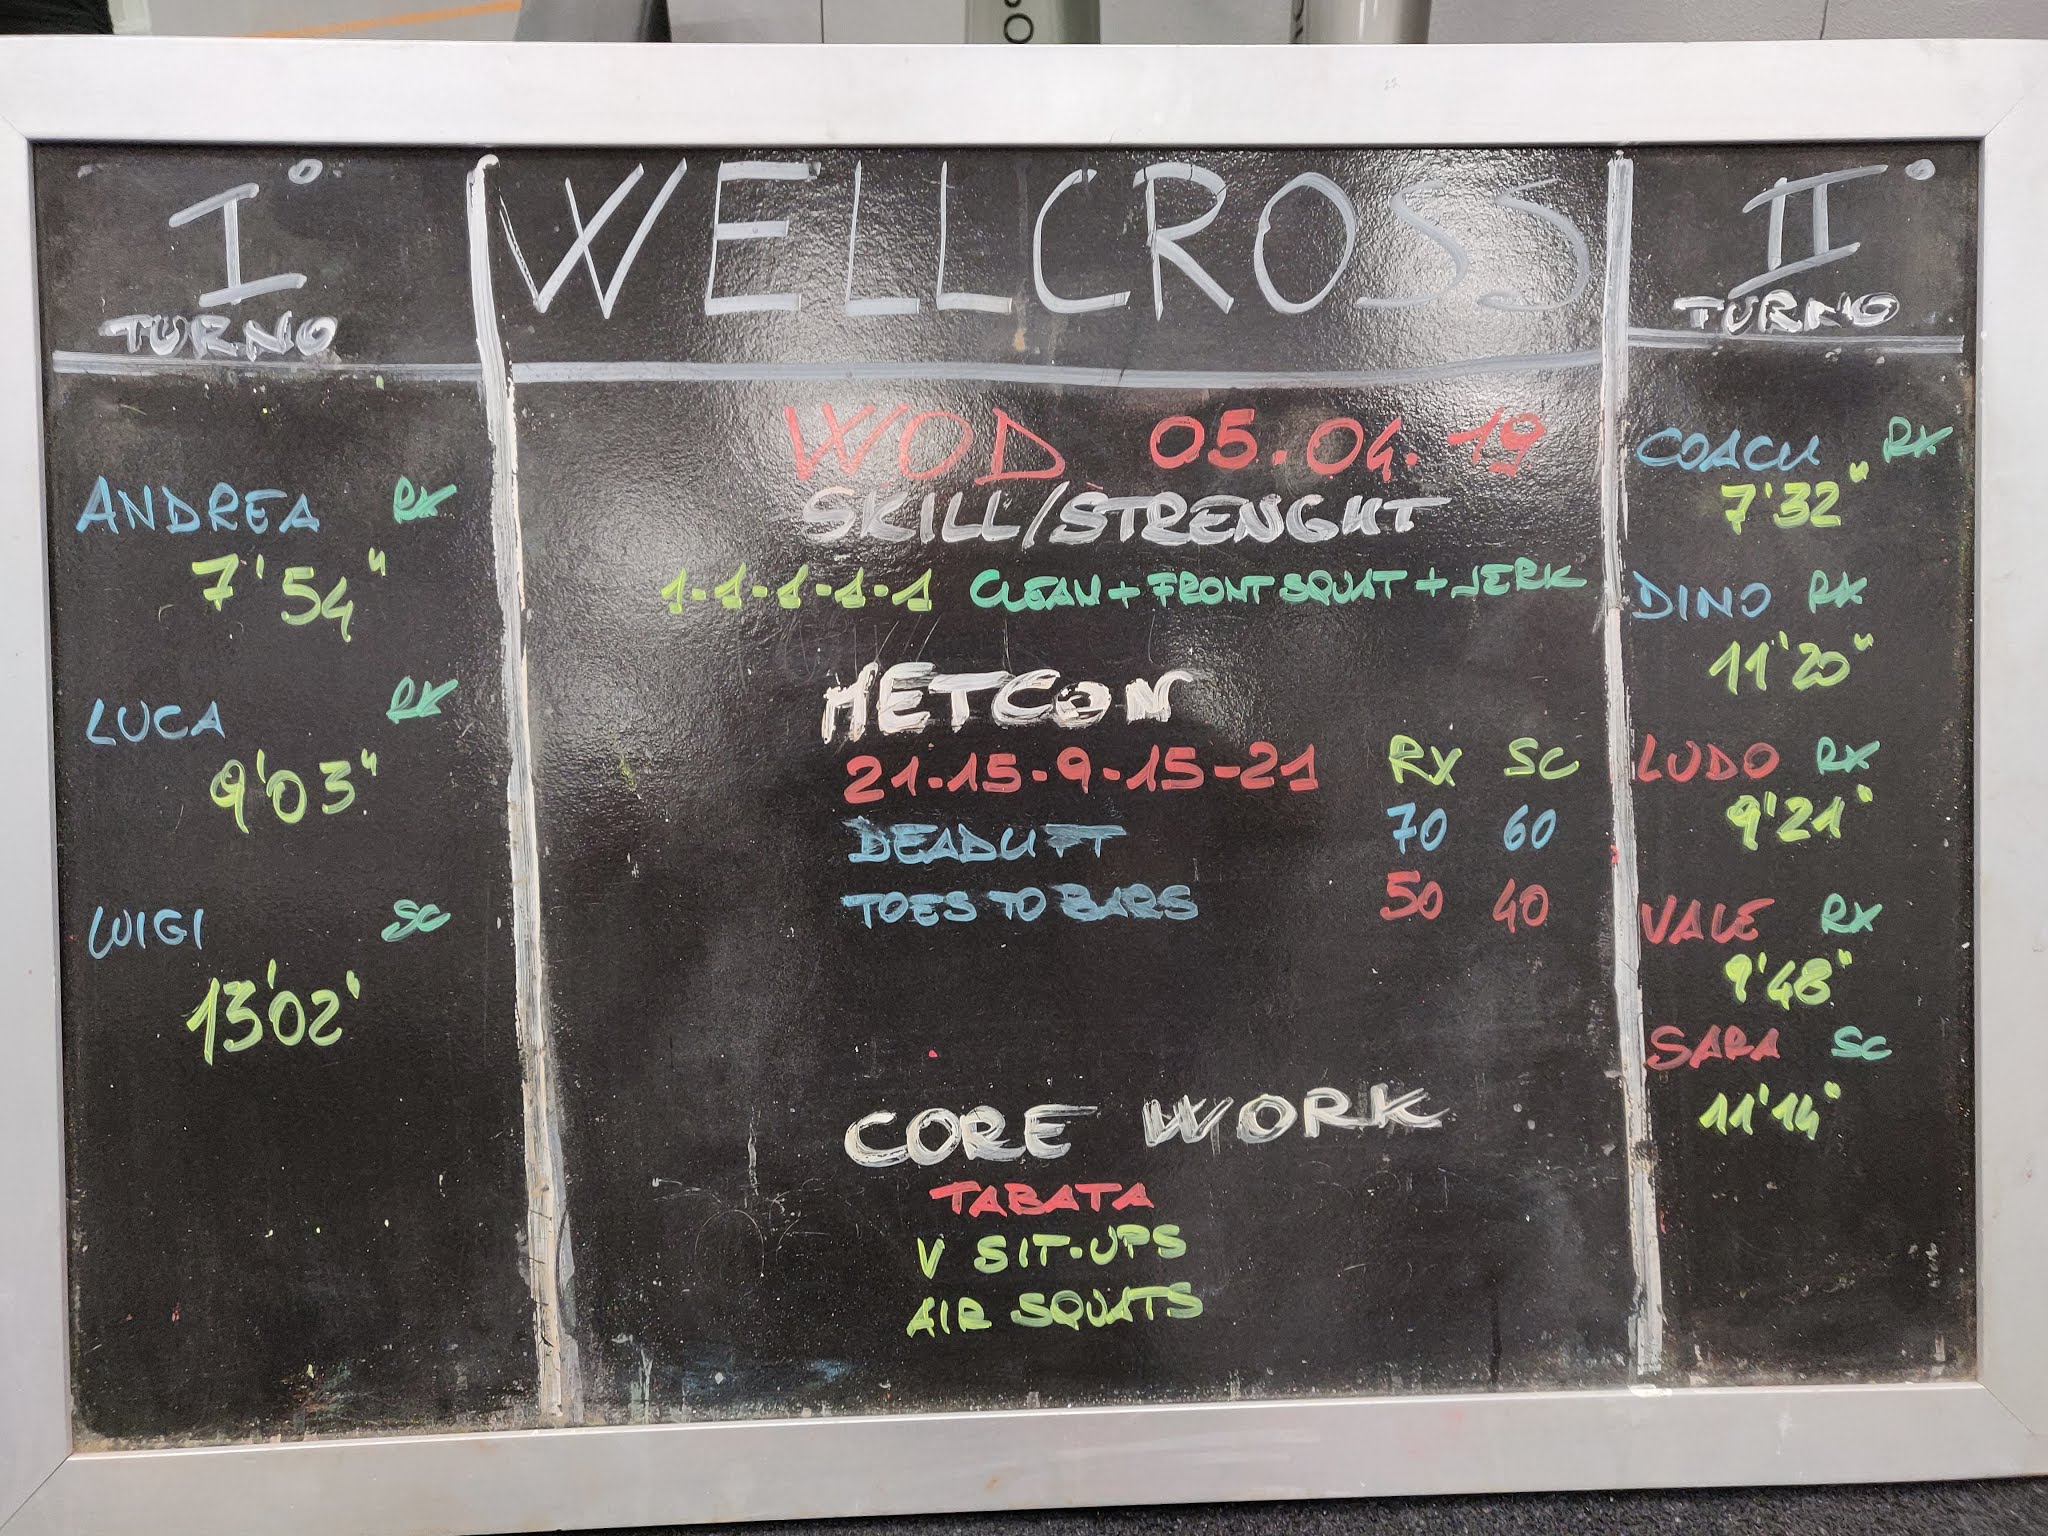 I°
TURNO
ANDREA RX
7'54"
LUCA RX
9'03"
LUIGI SC
13'02'
WELLCROSS
WOD 05.04.19
SKILL/STRENGHT
1-1-1-1-1 CLEAN + FRONT SQUAT + JERK
METCON
21-15-9-15-21 RX SC
DEADLIFT 70 60
TOES TO BARS 50 40
CORE WORK
TABATA
V SIT-UPS
AIR SQUATS
II°
TURNO
COACH RX
7'32"
DINO RX
11'20"
LUDO RX
9'21"
VALE RX
9'48"
SARA SC
11'14"